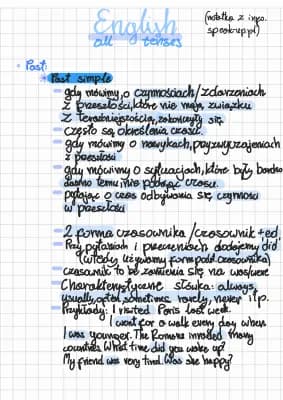 English
all tenses
(notatka z ingo.
speak-up.pl)
Past:
Past simple
gdy mówimy, o czynnościach/zdarzeniach
z przeszłości, które nie mają związku
z teraźniejszością, zakończyły się
często są określenia czasu.
gdy mówimy o nawykach, przyzwyczajeniach
z przeszłości
gdy mówimy o sytuacjach, które były bardzo
dawno temu, nie podając czasu.
pytając o czas odbywania się czynności
w przeszłości
2 forma czasownika/czasownik + ed.
Przy pytaniach i przeczeniach dodajemy did
(wtedy używamy form podst. czasownika)
czasownik to be zamienia się na was/were
Charakterystyczne słówka: always,
usually, often, sometimes, rarely, never itp.
Przykłady: I visited Paris last week.
I went for a walk every day when
I was younger. The Romans invaded many
countries. What time did you wake up?
My friend was very tired. Was she happy?